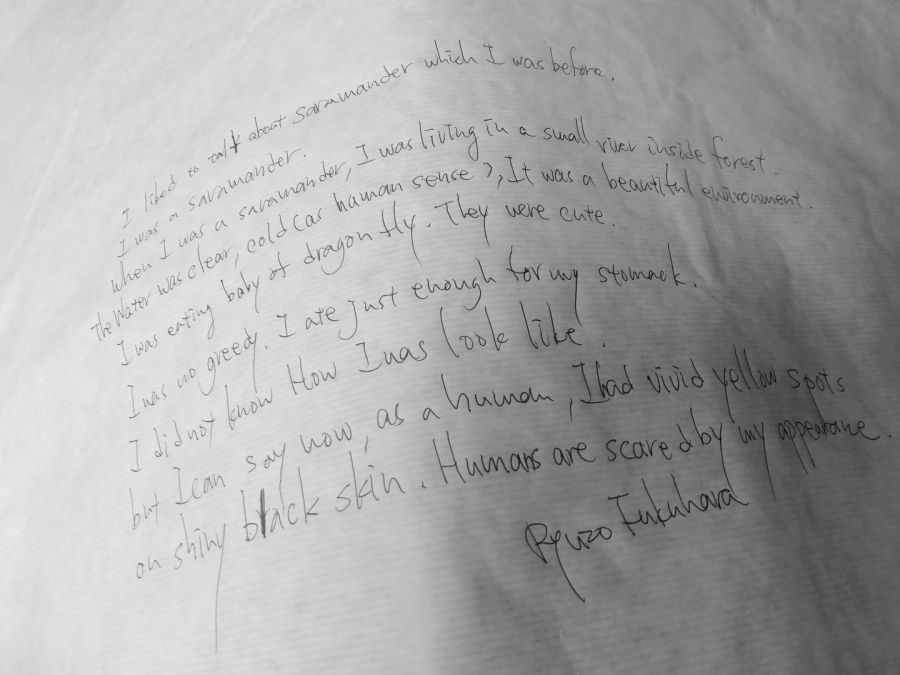 I liked to talk about saramander which I was before.
I was a saramander.
when I was a saramander, I was living in a small river inside forest.
The Water was clear, cold (as human sense), It was a beautiful environment.
I was eating baby of dragon fly. They were cute.
I was no greedy. I ate just enough for my stomack.
I did not know How I was look like.
but I can say now, as a human, I had vivid yellow spots
on shiny black skin. Humans are scared by my appearance.
Ryuzo Fukuhara